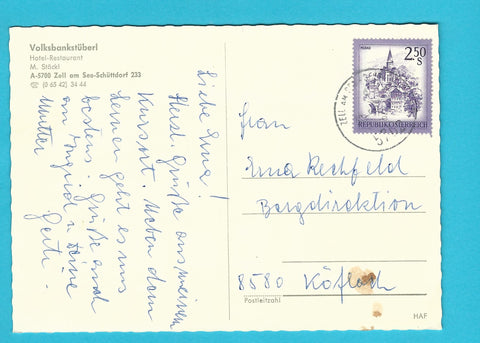 Volksbankstüberl
Hotel-Restaurant
M. Stöckl
A-5700 Zell am See-Schüttdorf 233
☎ (0 65 42) 34 44
Liebe Erna!
Herzl. Grüße aus meinem
Kursort. Neben dem
Lernen geht es uns
bestens. Grüße auch
an Ingrid u. Deine
Mutter
Gerti
MURAU
2.50
S
REPUBLIK ÖSTERREICH
ZELL AM
Frau
Erna Rechfeld
Bergdirektion
8580 Köflach
Postleitzahl
HAF